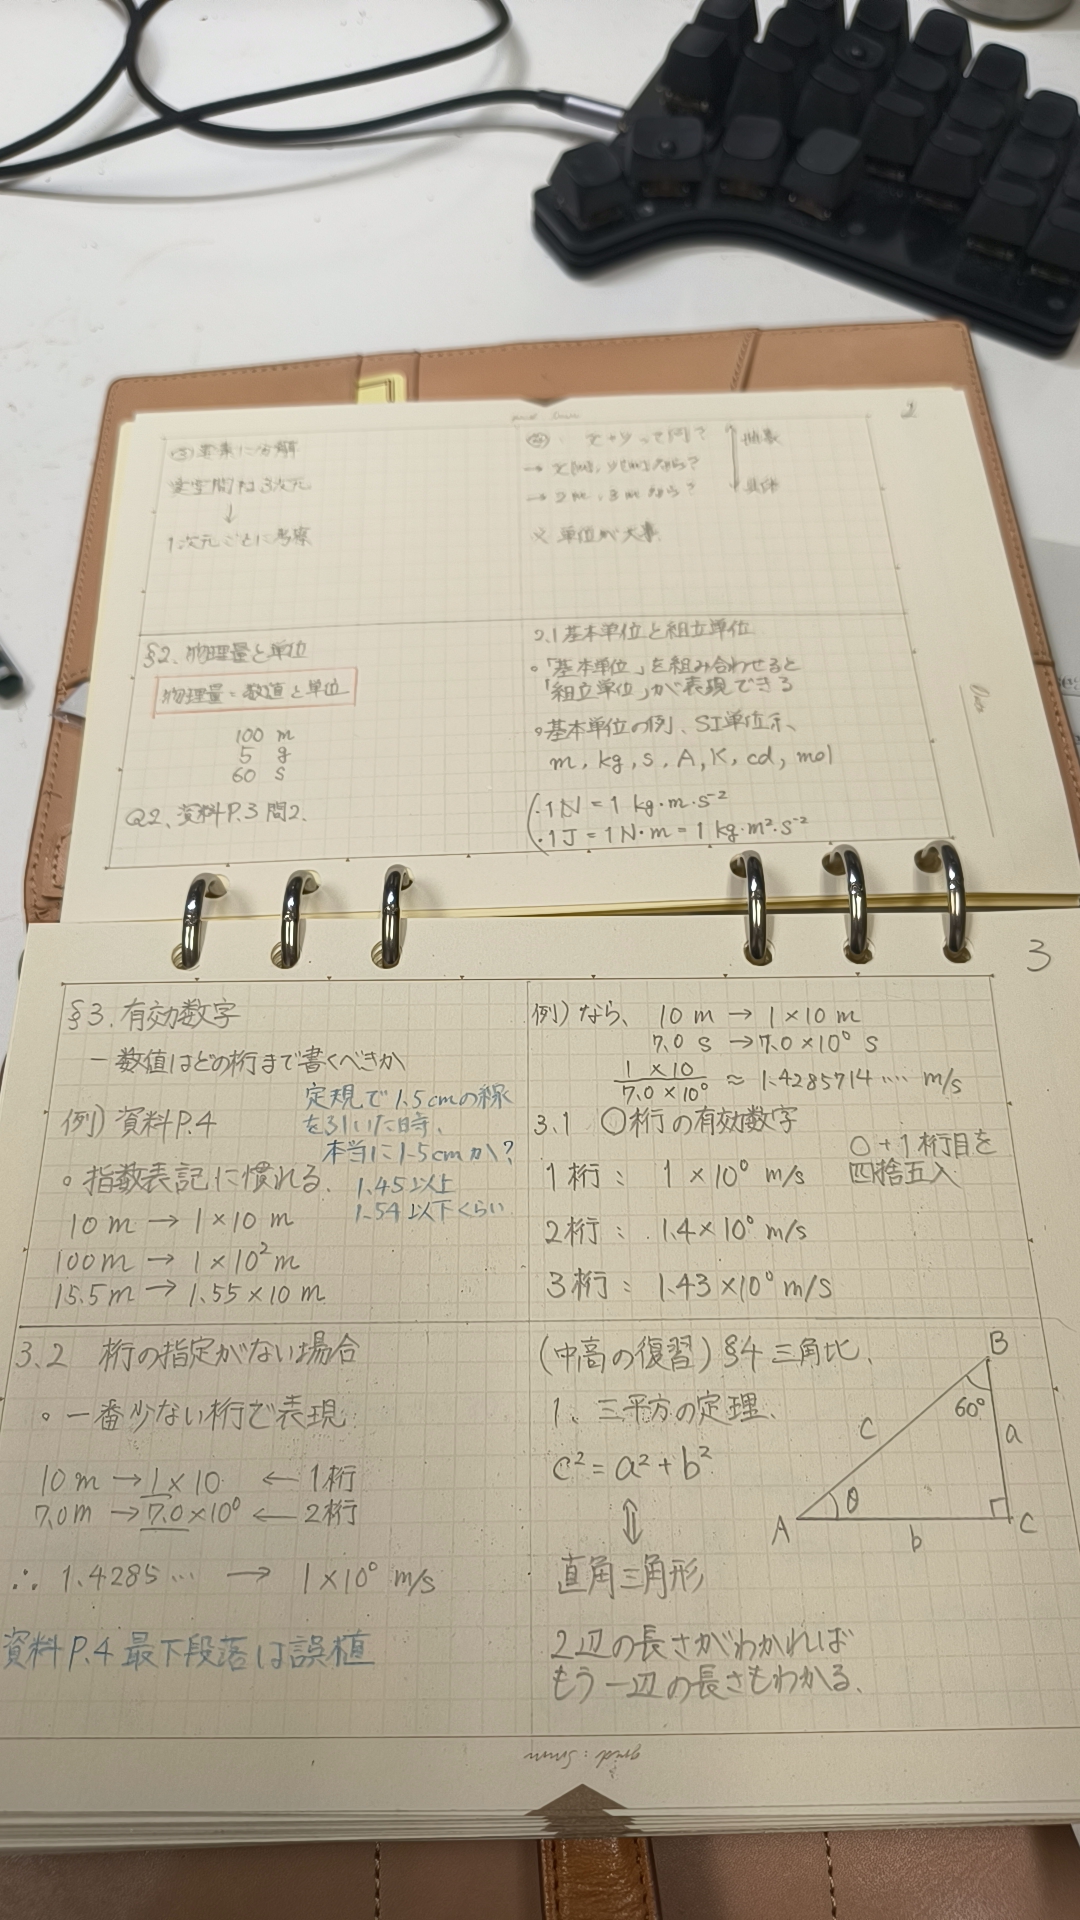 2
③要素に分解
実空間は3次元
↓
1次元ごとに考察
④ x+yって何?
→ x[m], y[m]なら?
→ 2m, 3mなら?
抽象
具体
※ 単位が大事
§2. 物理量と単位
物理量=数値と単位
100 m
5 g
60 s
Q2. 資料P.3 問2.
2.1 基本単位と組立単位
○「基本単位」を組み合わせると
「組立単位」が表現できる
○基本単位の例、SI単位系、
m, kg, s, A, K, cd, mol
・1N = 1 kg・m・s⁻²
・1J = 1N・m = 1 kg・m²・s⁻²
3
§3. 有効数字
― 数値はどの桁まで書くべきか
例) 資料P.4
定規で1.5cmの線
を引いた時、
本当に1.5cmか?
1.45以上
1.54以下くらい
○ 指数表記に慣れる.
10m → 1×10 m
100m → 1×10² m
15.5m → 1.55×10 m
例) なら、 10 m → 1×10 m
7.0 s → 7.0×10⁰ s
1 × 10 / 7.0×10⁰ ≈ 1.4285714…… m/s
3.1 ○桁の有効数字
○+1桁目を
四捨五入
1桁: 1 ×10⁰ m/s
2桁: 1.4×10⁰ m/s
3桁: 1.43×10⁰ m/s
3.2 桁の指定がない場合
○ 一番少ない桁で表現
10m → 1×10 ← 1桁
7.0m → 7.0×10⁰ ← 2桁
∴ 1.4285… → 1×10⁰ m/s
資料P.4 最下段落は誤植
(中高の復習) §4 三角比.
1. 三平方の定理.
c² = a² + b²
⇕
直角三角形
2辺の長さがわかれば
もう一辺の長さもわかる.
B
60°
c
a
A
θ
b
C
grid : 5mm